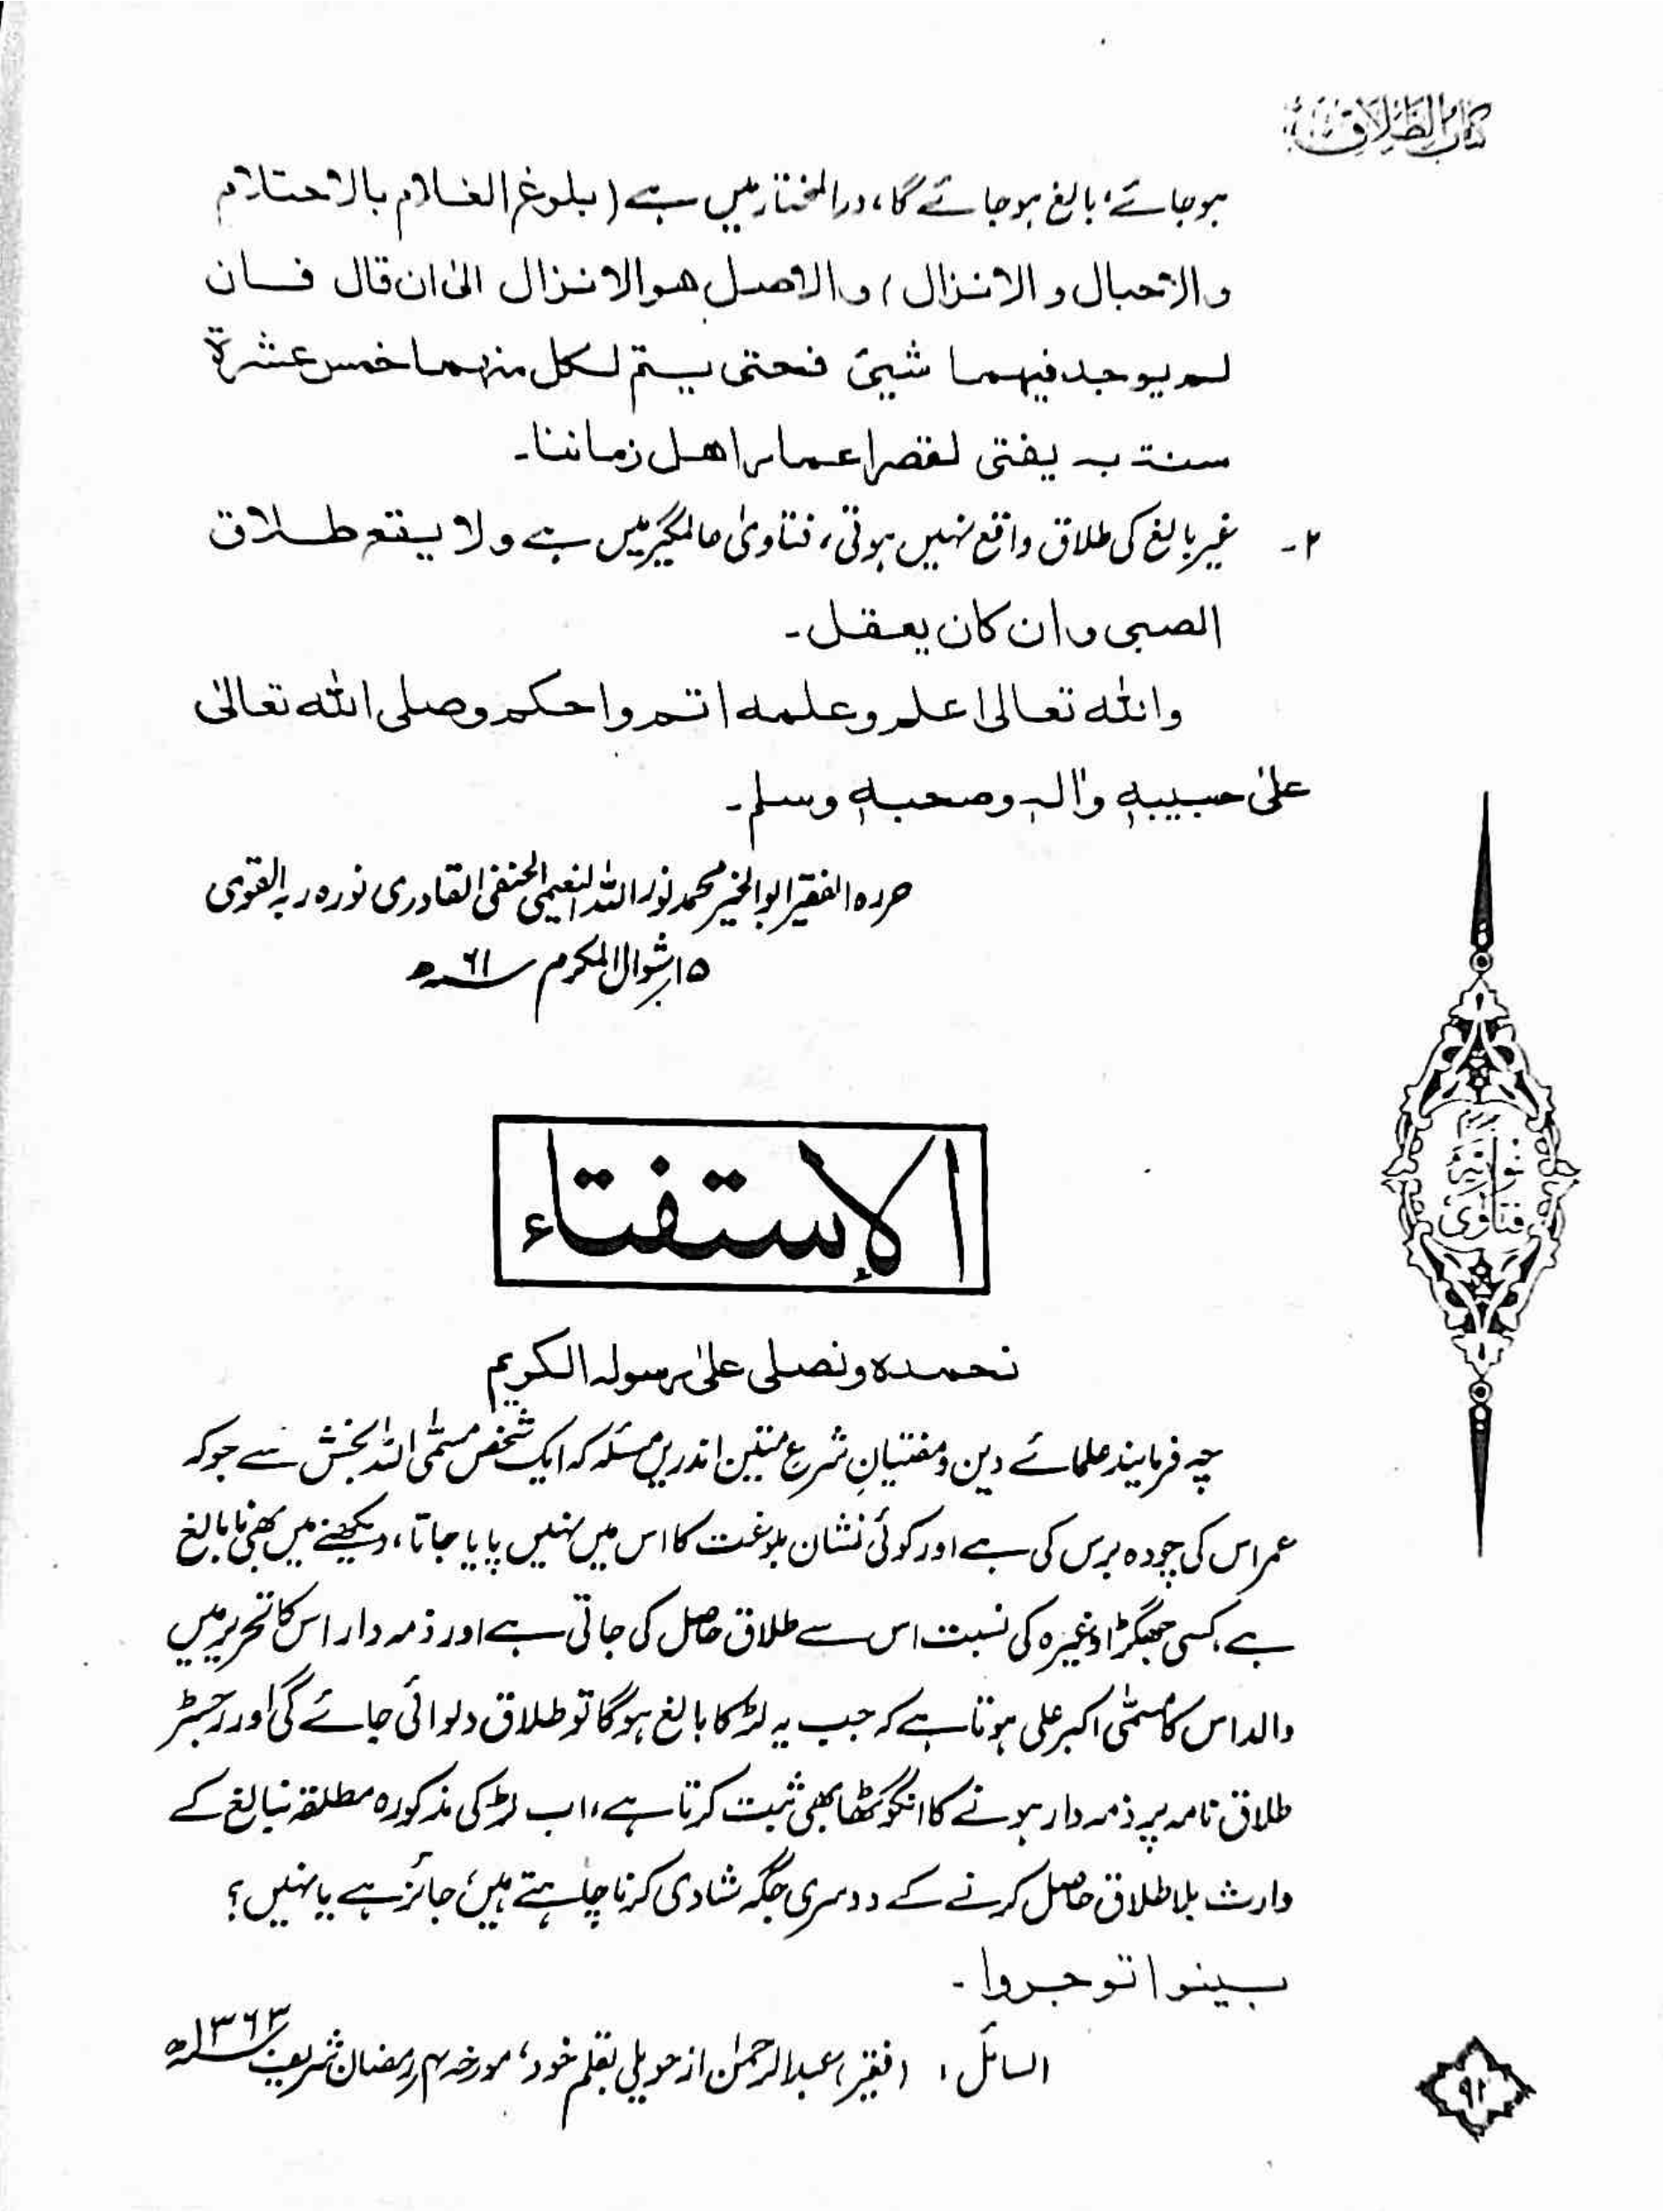 کتاب الطلاق
ہوجائے، بالغ ہوجائے گا، درالمختار میں ہے (بلوغ الغلام بالاحتلام
والاحبال والانزال) والاصل هو الانزال الیٰ ان قال فان
لم یوجد فیهما شیئ فحتی یتم لکل منهما خمس عشرة
سنة به یفتی لقصر اعمار اهل زماننا۔
۲۔ غیر بالغ کی طلاق واقع نہیں ہوتی، فتاویٰ عالمگیر میں ہے ولا یقع طلاق
الصبی وان کان یعقل۔
والله تعالیٰ اعلم وعلمه اتم واحکم وصلی الله تعالیٰ
علیٰ حبیبه واٰله وصحبه وسلم۔
حررہ الفقیر ابوالخیر محمد نور اللہ النعیمی الحنفی القادری نورہ ربہ القوی
۱۵ شوال المکرم ۶۱ھ
الإستفتاء
نحمده ونصلی علیٰ رسوله الکریم
چہ فرمایند علمائے دین و مفتیانِ شرع متین اندریں مسئلہ کہ ایک شخص مسمّٰی اللہ بخش سے جوکہ
عمر اس کی چودہ برس کی ہے اور کوئی نشان بلوغت کا اس میں نہیں پایا جاتا، دیکھنے میں بھی نابالغ
ہے، کسی جھگڑا وغیرہ کی نسبت اس سے طلاق حاصل کی جاتی ہے اور ذمہ دار اس کا تحریر میں
والد اس کا مسمّٰی اکبر علی ہوتا ہے کہ جب یہ لڑکا بالغ ہوگا تو طلاق دلوائی جائے گی اور رجسٹر
طلاق نامہ پر ذمہ دار ہونے کا انگوٹھا بھی ثبت کرتا ہے، اب لڑکی مذکورہ مطلقہ نبالغ کے
وارث بلا طلاق حاصل کرنے کے دوسری جگہ شادی کرنا چاہتے ہیں، جائز ہے یا نہیں؟
بینوا توجروا۔
السائل: (فقیر) عبدالرحمٰن از حویلی بقلم خود، مورخہ ۴ رمضان شریف ۱۳۶۳ھ
فتاویٰ نوریہ
۹۲